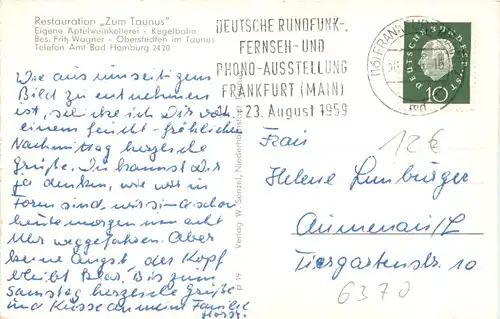 Restauration „Zum Taunus"
Eigene Apfelweinkelterei - Kegelbahn
Bes. Fritz Wagner - Oberstedten im Taunus
Telefon Amt Bad Homburg 2420
DEUTSCHE RUNDFUNK-,
FERNSEH- UND
PHONO-AUSSTELLUNG
FRANKFURT (MAIN)
14. - 23. August 1959
(16) FRANKFURT
DEUTSCHE BUNDESPOST
10
Wie aus umseitigem
Bild zu entnehmen
ist, schicke ich Dir von
einem feucht-fröhlichen
Nachmittag herzliche
Grüße. Du kannst Dir
ja denken, wie wir in
Form sind, wir sind schon
heute morgen um acht
Uhr weggefahren. Aber
keine Angst der Kopf
bleibt klar. Bis zum
Samstag herzliche Grüße
und Küsse an meine Familie
Horst.
Verlag W. Sänzel, Niederhöchstadt
P 19
12€
Frau
Helene Lumbürger
Aumenau/L
Tiergartenstr. 10
6370